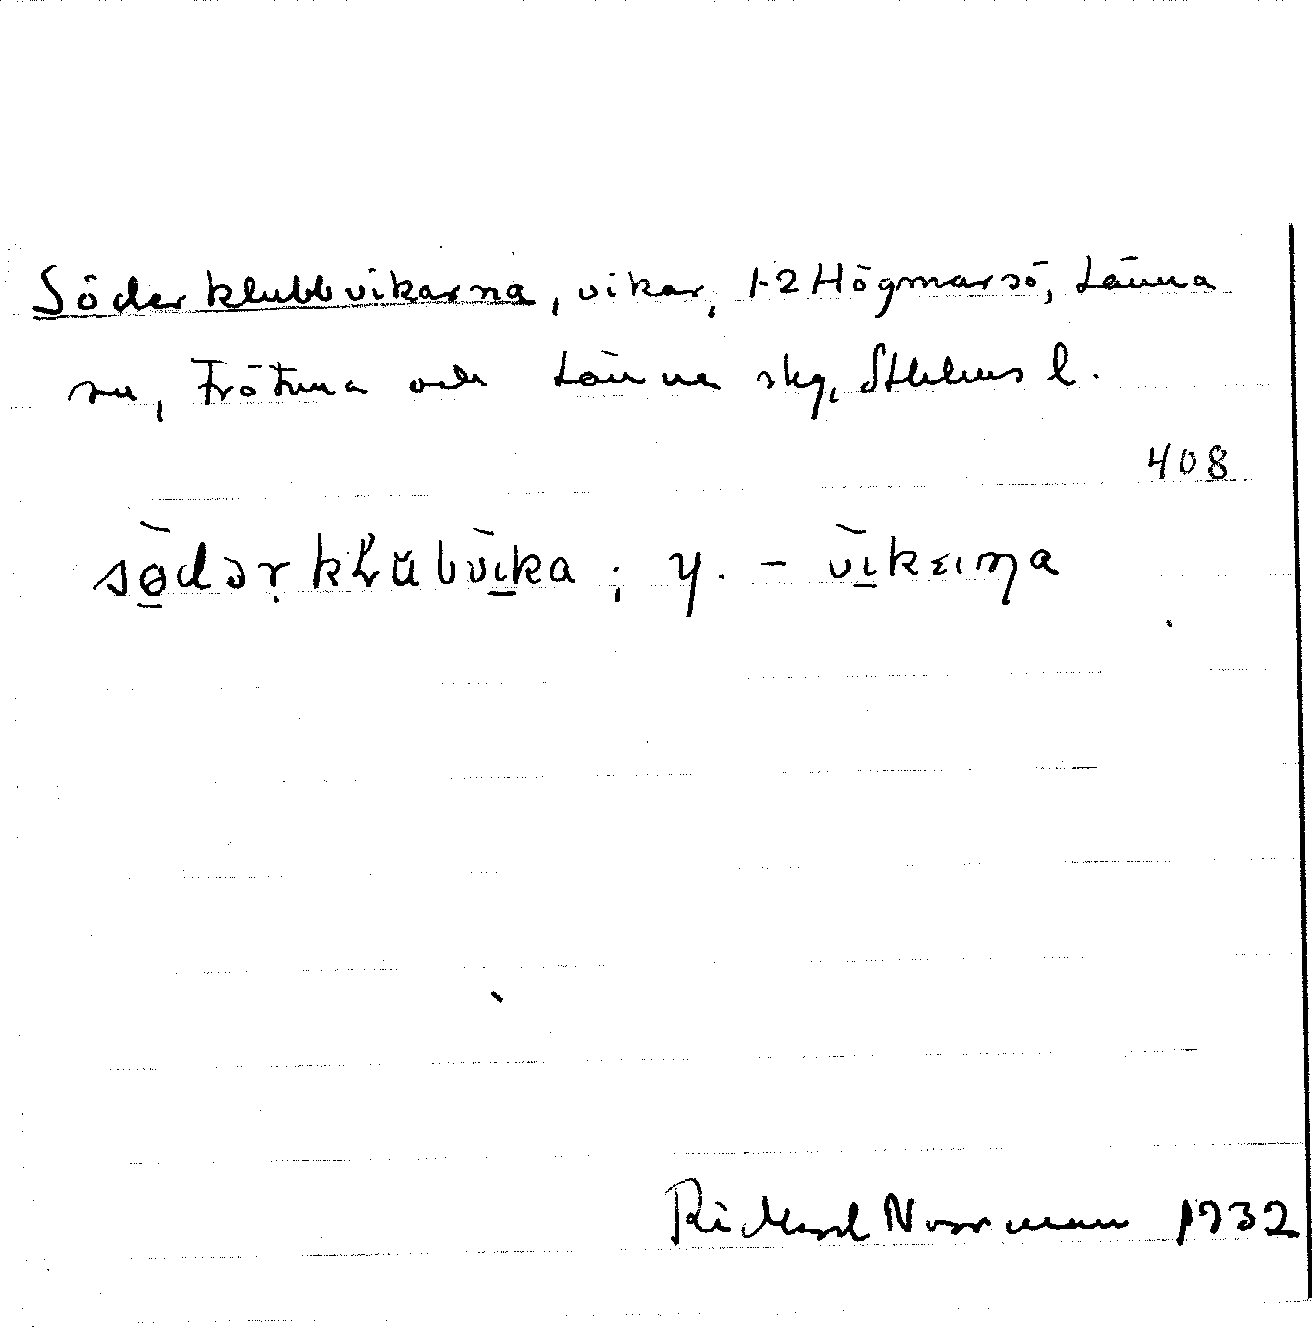 Söderklubbvikarna, vikar, 1-2 Högmarsö, Länna
sn, Frötuna och Länna skg, Sthlms l.
408
sø̱̀dər kłŭbvì̱ka ; y. – vì̱kɛɩṇa
Rickard Norrman 1932